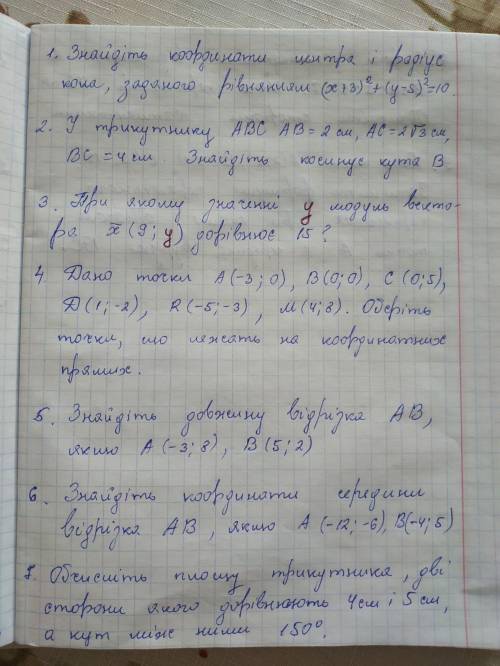 1. Знайдіть координати центра і радіус
кола, заданого рівнянням (x+3)²+(y-5)²=10.
2. У трикутнику ABC AB=2 см, AC=2√3 см,
BC=4 см. Знайдіть косинус кута B.
3. При якому значенні y модуль векто-
ра x̅ (9; y) дорівнює 15?
4. Дано точки A(-3; 0), B(0; 0), C(0; 5),
D(1; -2), R(-5; -3), M(4; 8). Оберіть
точки, що лежать на координатних
прямих.
5. Знайдіть довжину відрізка AB,
якщо A(-3; 8), B(5; 2)
6. Знайдіть координати середини
відрізка AB, якщо A(-12; -6), B(-4; 5)
7. Обчисліть площу трикутника, дві
сторони якого дорівнюють 4 см і 5 см,
а кут між ними 150°.